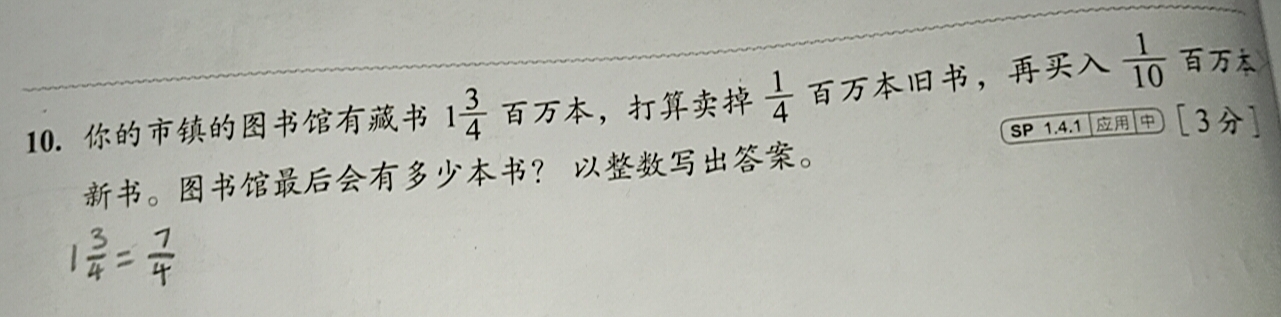 10. 你的市镇的图书馆有藏书 1 3/4 百万本，打算卖掉 1/4 百万本旧书，再买入 1/10 百万本
新书。图书馆最后会有多少本书？ 以整数写出答案。 SP 1.4.1 应用 中 [3分]
1 3/4 = 7/4